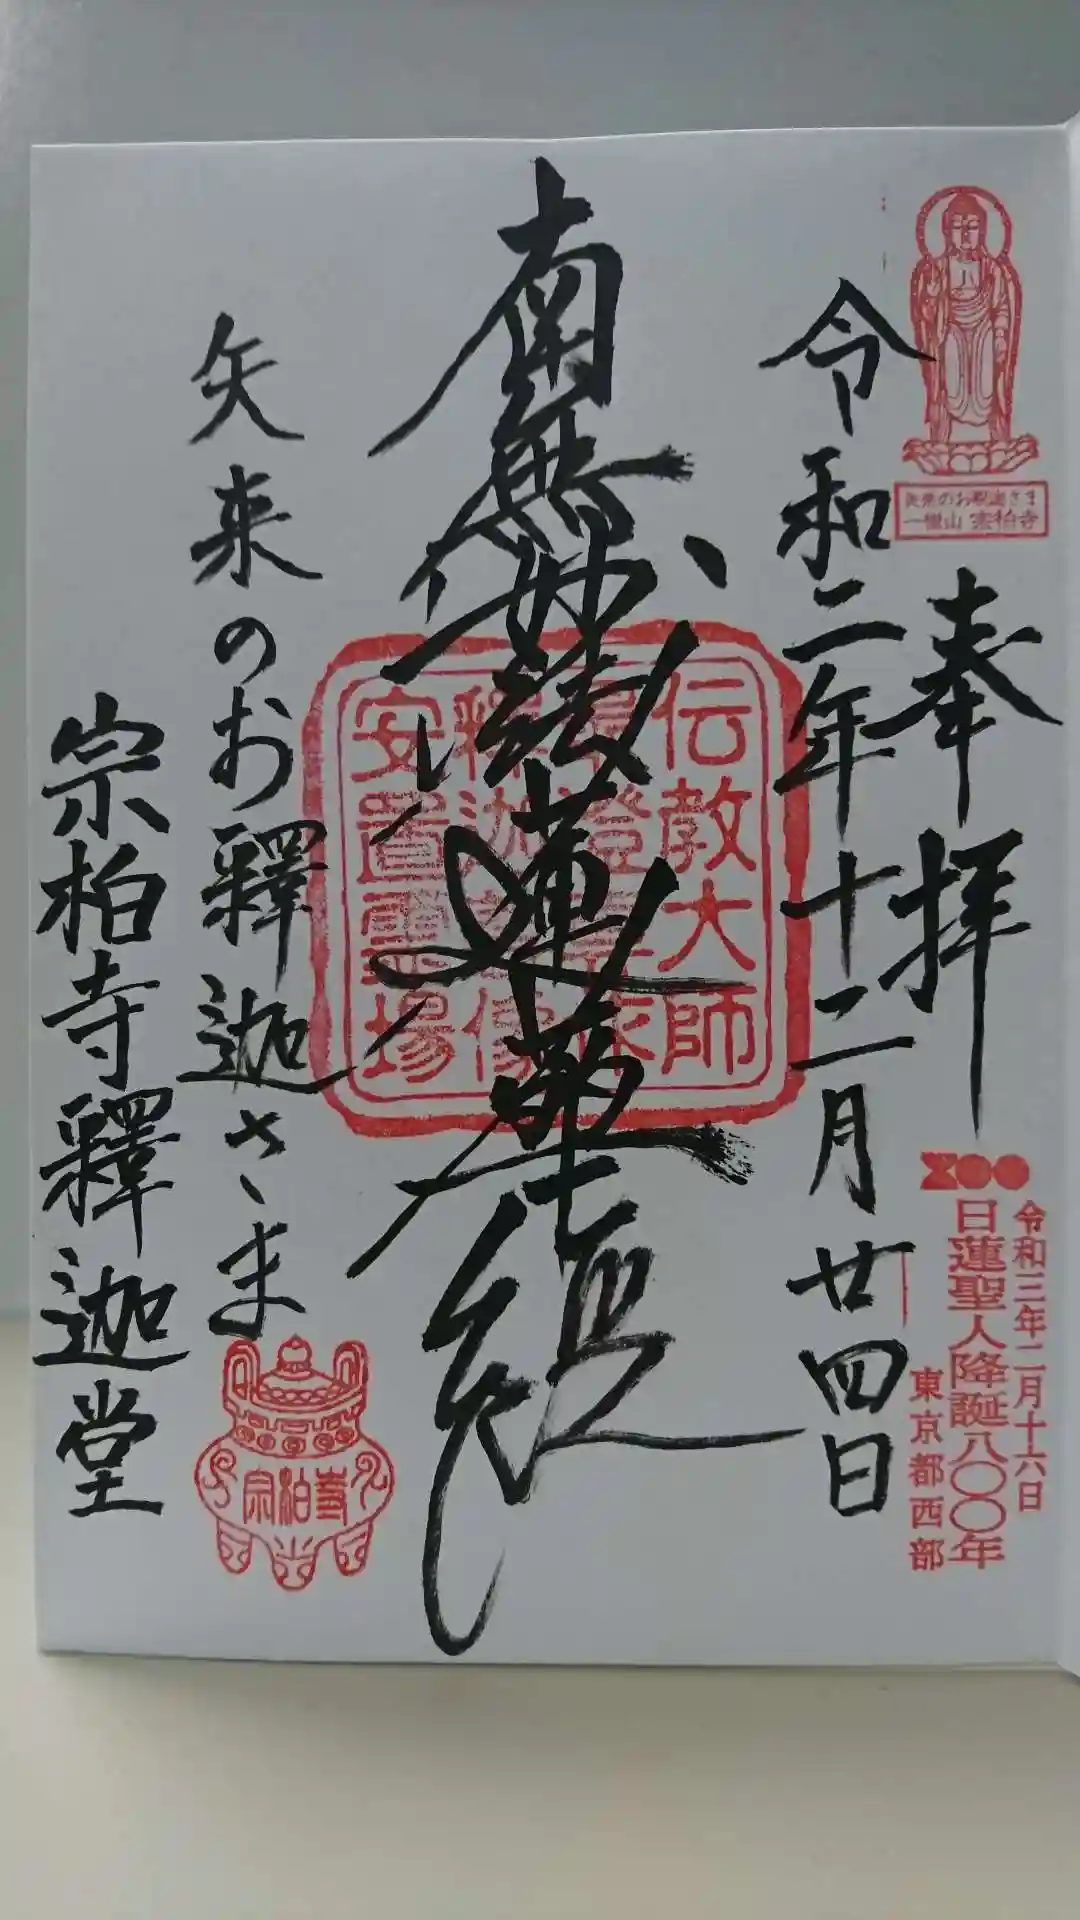 矢来のお釈迦さま
一樹山 宗柏寺
奉拝
令和二年十二月廿四日
令和三年二月十六日
日蓮聖人降誕八〇〇年
東京都西部
南無妙法蓮華経
伝教大師
尊澄
釋迦尊像
安置霊場
矢来のお釋迦さま
宗柏寺
宗柏寺釋迦堂